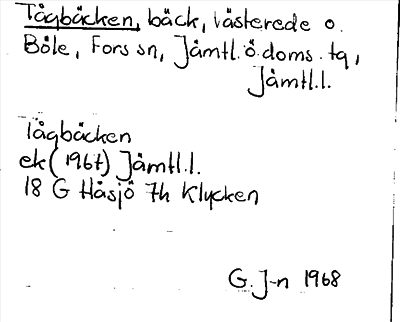 Tågbäcken, bäck, västerede o.
Böle, Fors sn, Jämtl.ö.doms. tg,
Jämtl.l.
Tågbäcken
ek (1967) Jämtl.l.
18 G Håsjö 7h Klycken
G. J-n 1968